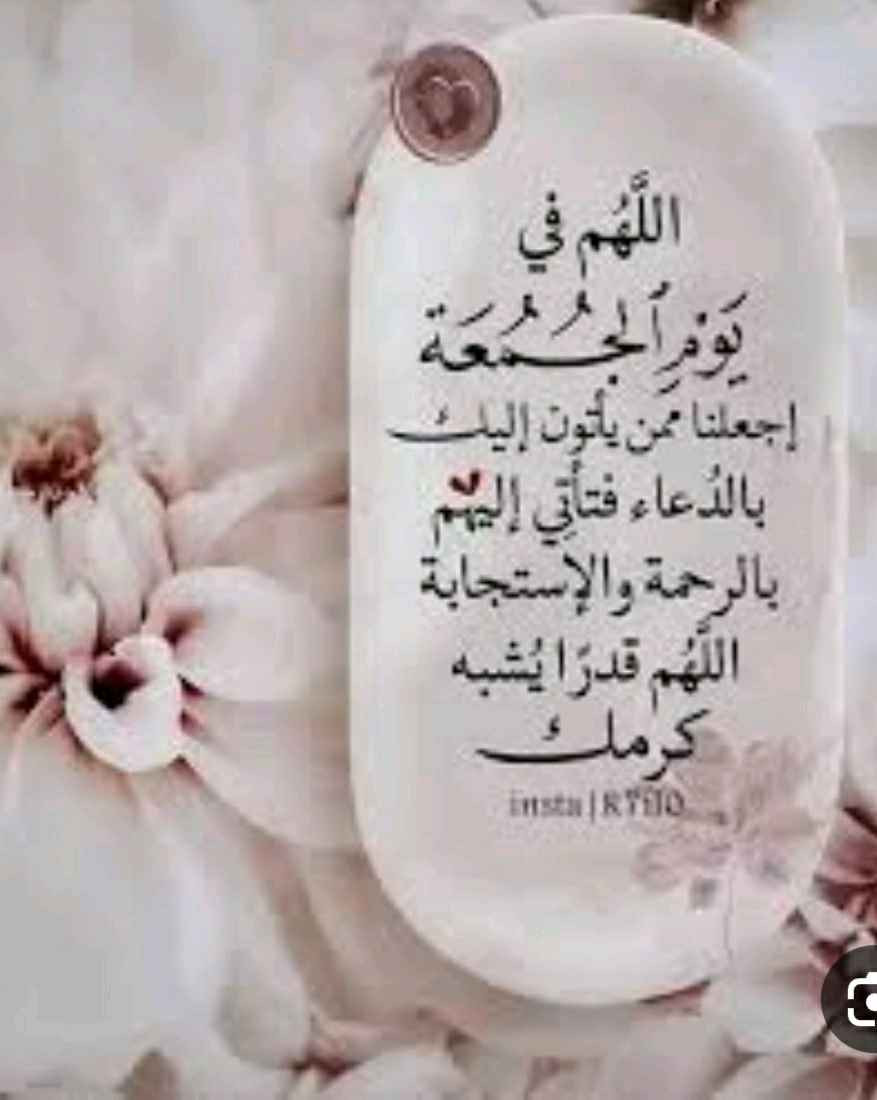 اللَّهُم في
يَوْمِ ٱلجُمُعَة
إجعلنا ممن يأتون إليك
بالدُعاء فتأتِي إليهم
بالرحمة والإستجابة
اللَّهُم قدرًا يُشبه
كرمك
insta|